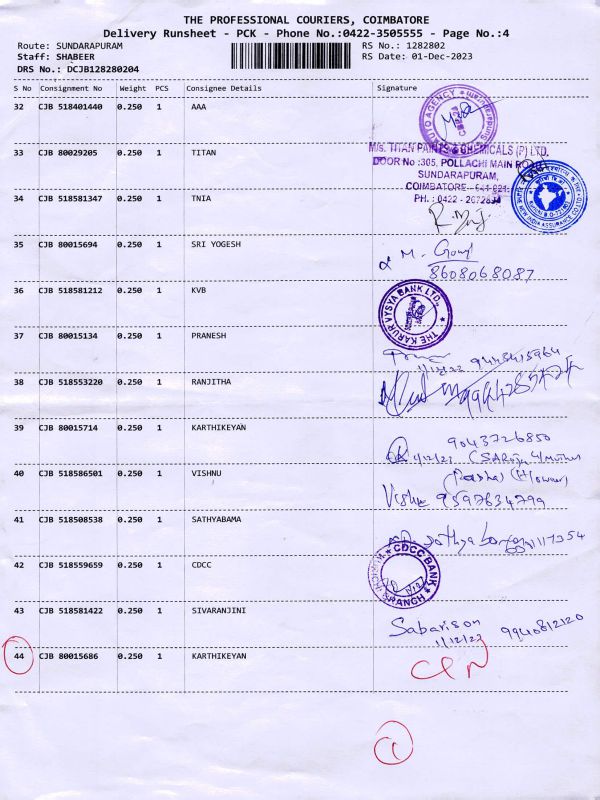 THE PROFESSIONAL COURIERS, COIMBATORE
Delivery Runsheet - PCK - Phone No.:0422-3505555 - Page No.:4
Route: SUNDARAPURAM
RS No.: 1282802
Staff: SHABEER
RS Date: 01-Dec-2023
DRS No.: DCJB128280204
S No Consignment No Weight PCS Consignee Details Signature
32 CJB 518401440 0.250 1 AAA
AUTO AGENCY
33 CJB 80029205 0.250 1 TITAN
M/s. TITAN PAINTS & CHEMICALS (P) LTD.
DOOR No :305, POLLACHI MAIN ROAD
SUNDARAPURAM,
COIMBATORE - 641 021.
PH. : 0422 - 2672834
34 CJB 518581347 0.250 1 TNIA
35 CJB 80015694 0.250 1 SRI YOGESH
8608068087
36 CJB 518581212 0.250 1 KVB
THE KARUR VYSYA BANK LTD.,
37 CJB 80015134 0.250 1 PRANESH
1/12/23
38 CJB 518553220 0.250 1 RANJITHA
39 CJB 80015714 0.250 1 KARTHIKEYAN
9043726850
1/12/23
40 CJB 518586501 0.250 1 VISHNU
9597634799
41 CJB 518508538 0.250 1 SATHYABAMA
42 CJB 518559659 0.250 1 CDCC
CDCC BANK
BRANCH
43 CJB 518581422 0.250 1 SIVARANJINI
Sabarison
1/12/23 9940812120
44 CJB 80015686 0.250 1 KARTHIKEYAN
1